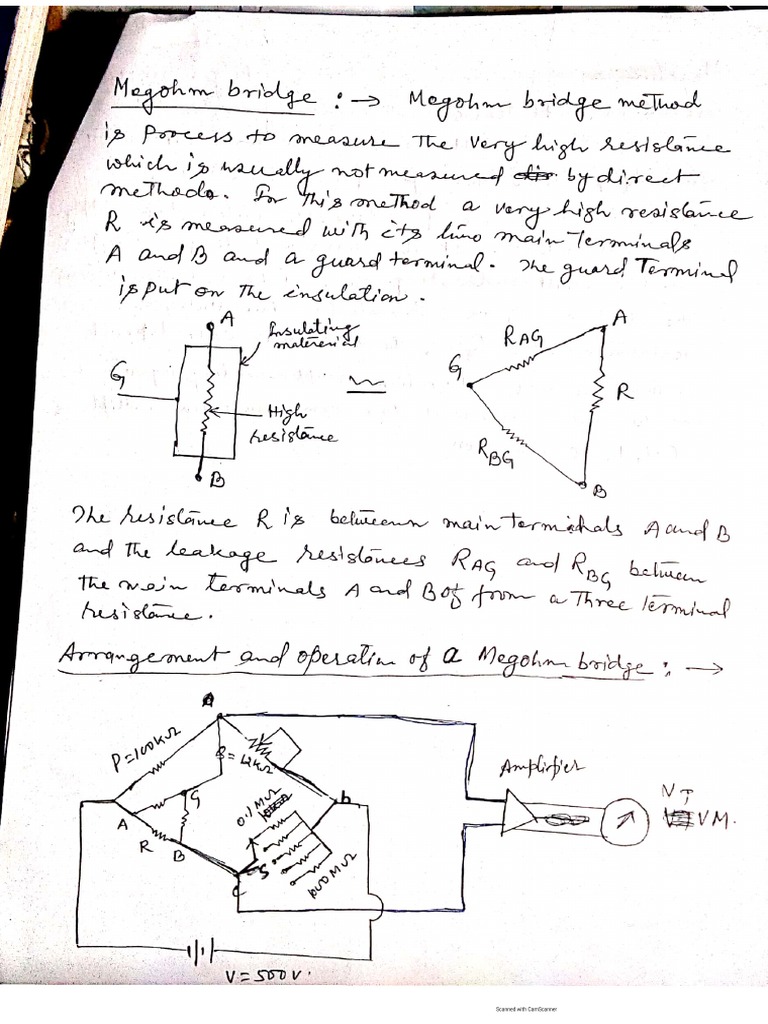 Megohm bridge :→ Megohm bridge method
is Process to measure The very high resistance
which is usually not measured by direct
methods. In This method a very high resistance
R is measured with its two main Terminals
A and B and a guard terminal. The guard Terminal
is put on The insulation.
A
Insulating
matererial
G
High
resistance
B
A
RAG
G
R
RBG
B
The resistance R is between main terminals A and B
and the leakage resistances RAG and RBG between
The main terminals A and B of from a Three terminal
resistance.
Arrangement and operation of a Megohm bridge :→
P=100KΩ
G
A
R
B
0.1 MΩ
C
S
1000 MΩ
b
Amplifier
VT
VM.
V=500V.
Scanned with CamScanner